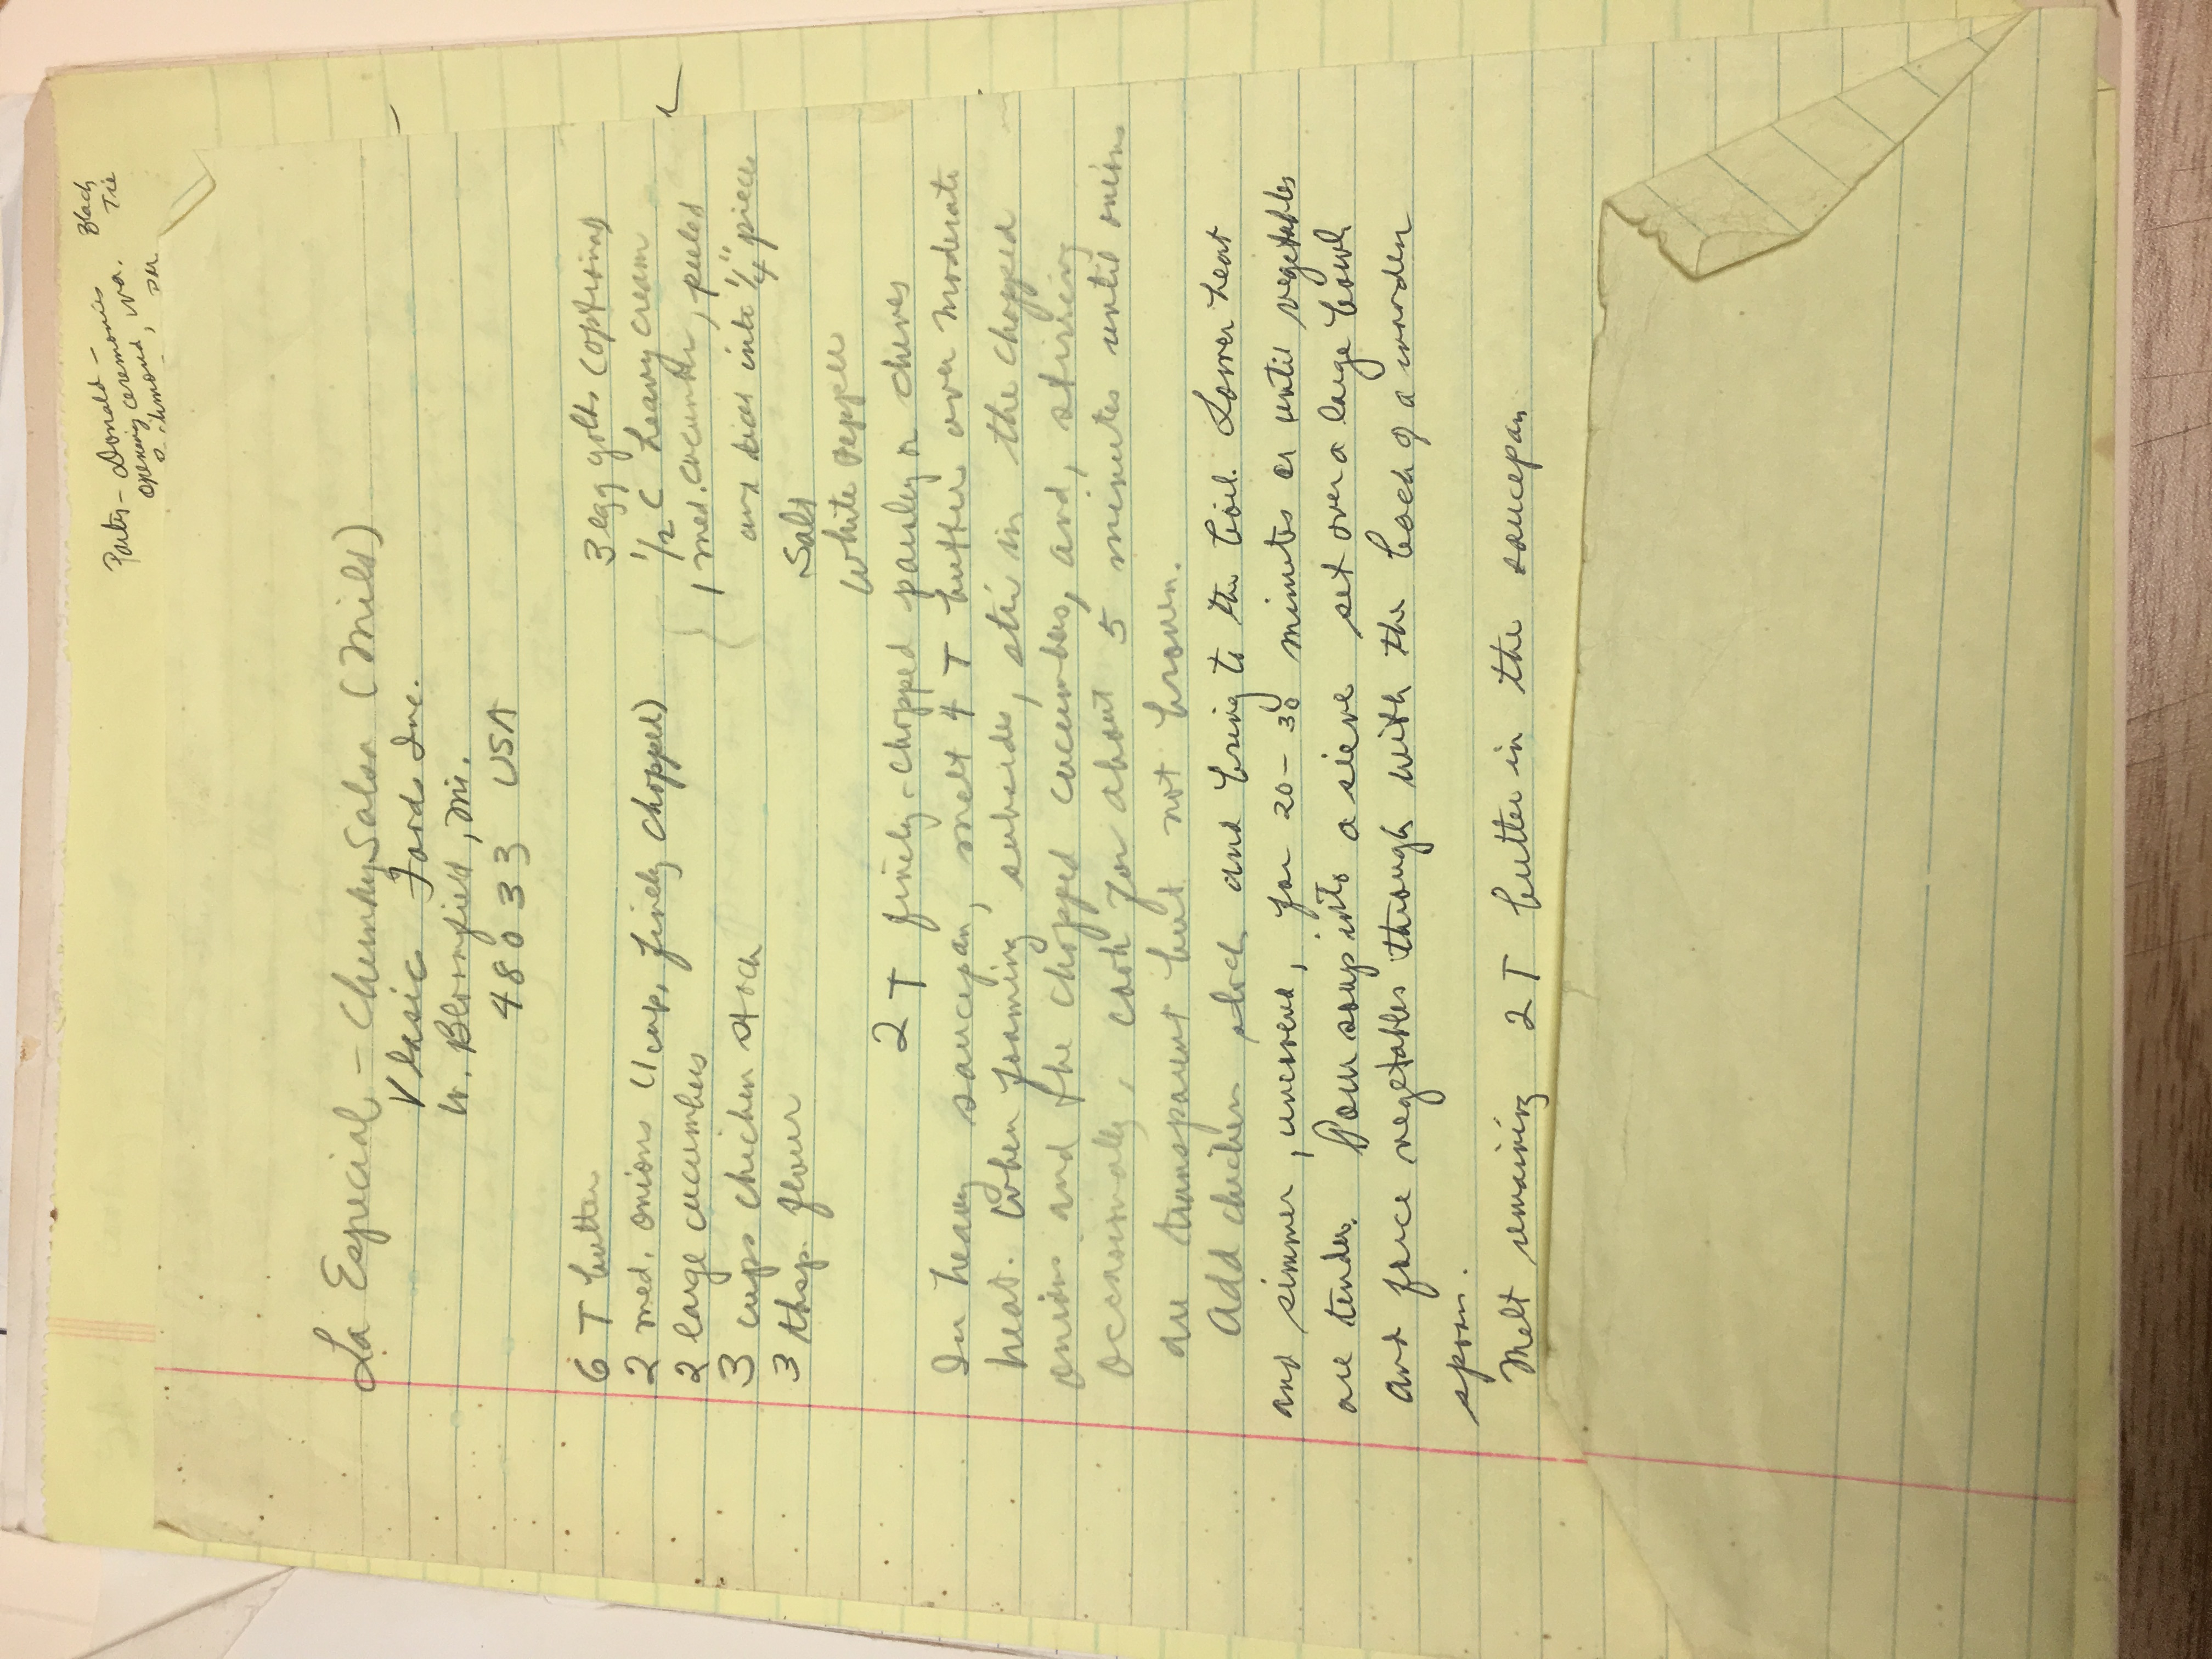 Party - Donald - Black
opening ceremonies Tie
Richmond, Va.
La Especial - Chunky Salsa (Mild)
Vlasic Foods Inc.
W. Bloomfield, Mi.
48033 USA
6 T butter
2 med. onions (1 cup, finely chopped)
2 large cucumbers
3 cups chicken stock
3 tbsp. flour
3 egg yolks (optional)
1/2 C heavy cream
1 med. cucumber, peeled
and diced into 1/4" pieces
Salt
White Pepper
2 T finely-chopped parsley or chives
In heavy saucepan, melt 4 T butter over moderate
heat. When foaming subsides, stir in the chopped
onions and the chopped cucumbers, and, stirring
occasionally, cook for about 5 minutes until onions
are transparent but not brown.
Add chicken stock and bring to the boil. Lower heat
and simmer, uncovered, for 20-30 minutes or until vegetables
are tender. Pour soup into a sieve set over a large bowl
and force vegetables through with the back of a wooden
spoon.
Melt remaining 2 T butter in the saucepan